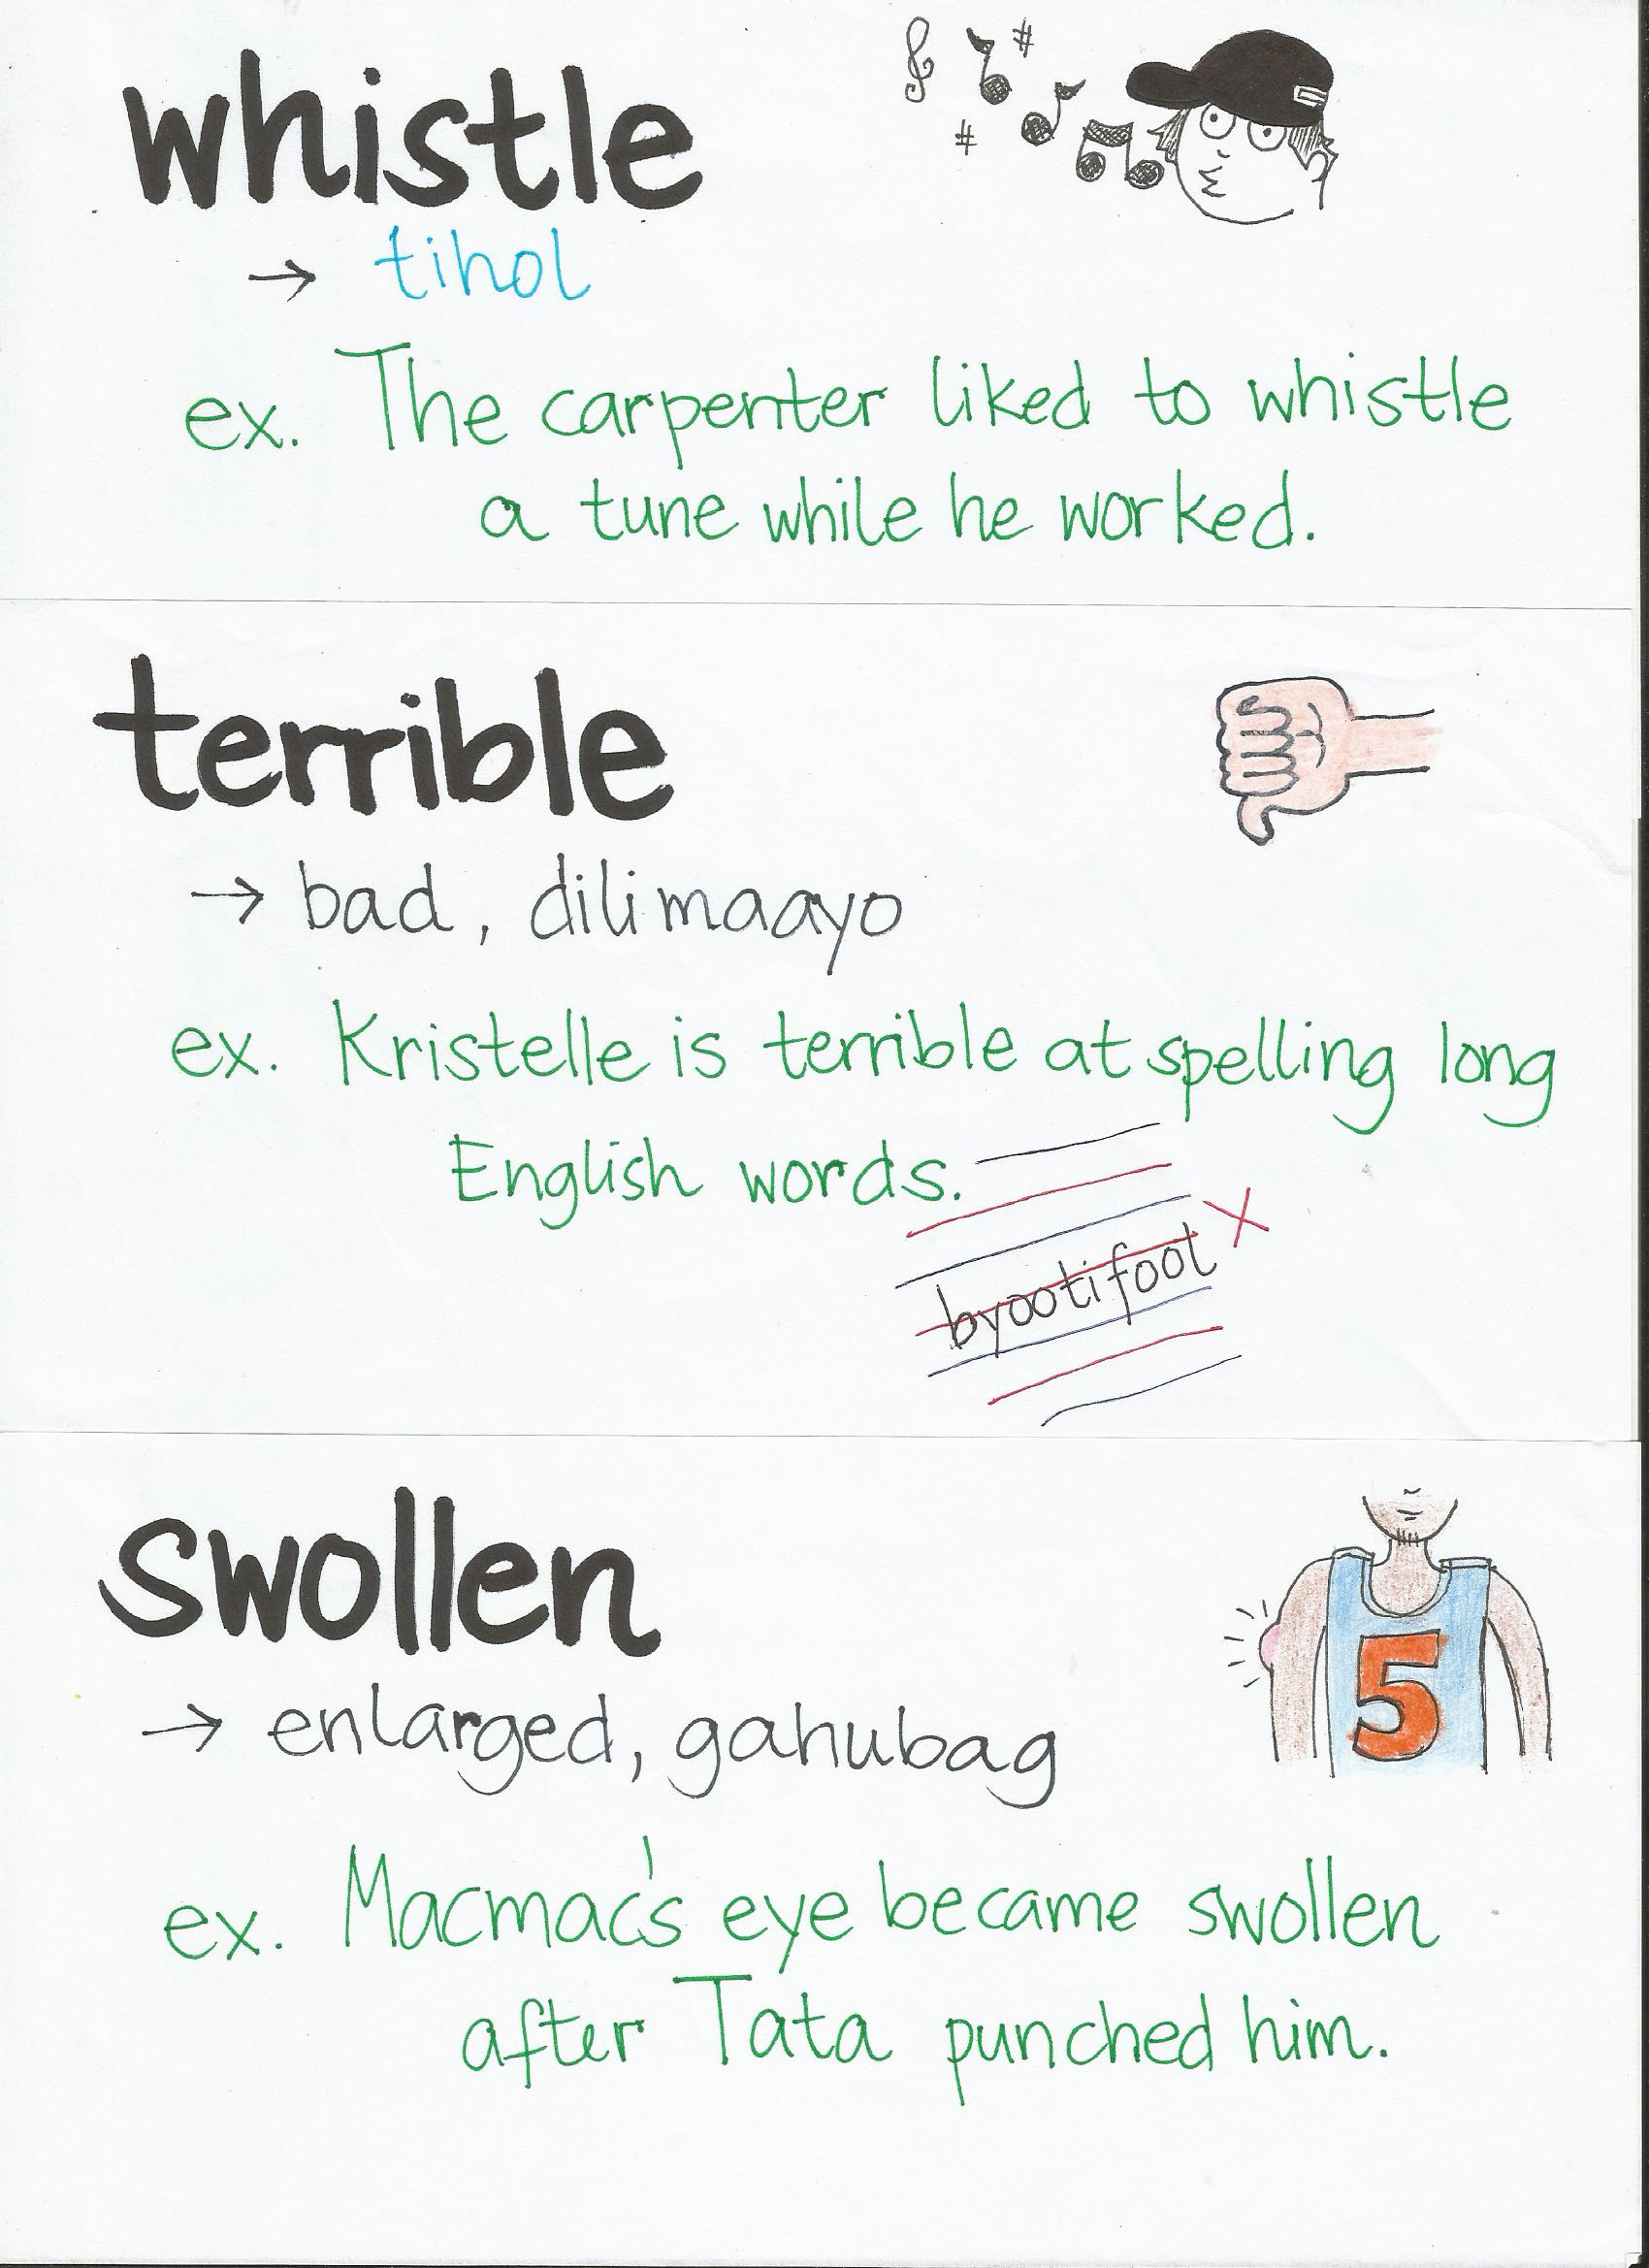 whistle
→ tihol
ex. The carpenter liked to whistle
a tune while he worked.
terrible
→ bad, dili maayo
ex. Kristelle is terrible at spelling long
English words.
byootifool X
swollen
→ enlarged, gahubag
5
ex. Macmac's eye became swollen
after Tata punched him.